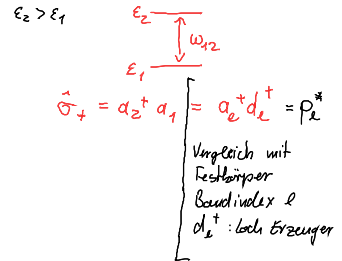 ε₂ > ε₁
ε₂
ω₁₂
ε₁
σ̂₊ = a₂⁺ a₁ = a_e⁺ d_e⁺ = p_e*
Vergleich mit
Festkörper
Bandindex l
d_e⁺ : Loch Erzeuger